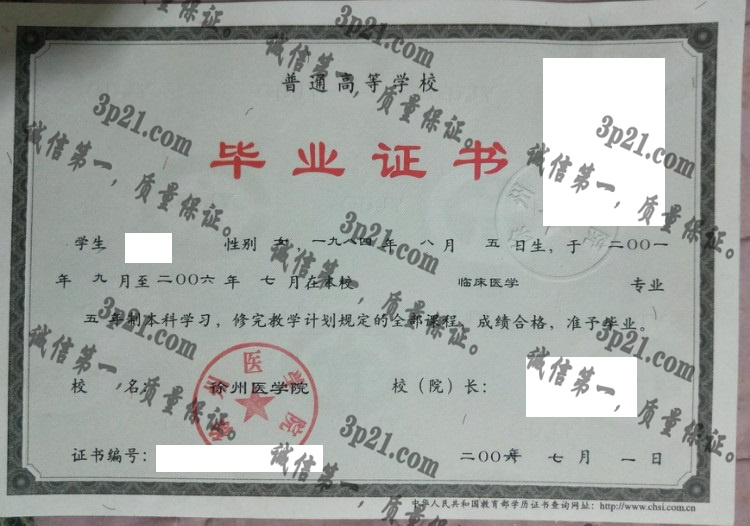 普通高等学校
毕业证书
学生 性别 女，一九八四年 八月 五日生，于二〇〇一
年 九月至二〇〇六年 七月在本校 临床医学 专业
五年制本科学习，修完教学计划规定的全部课程，成绩合格，准予毕业。
校 名： 徐州医学院 校（院）长：
证书编号： 二〇〇六年 七月 一日
中华人民共和国教育部学历证书查询网址：http://www.chsi.com.cn
徐州医学院
3p21.com
诚信第一，质量保证。
3p21.com
诚信第一，质量保证。
3p21.com
诚信第一，质量保证。
3p21.com
诚信第一，质量保证。
3p21.com
诚信第一，质量保证。
3p21.com
诚信第一，质量保证。
3p21.com
诚信第一，质量保证。
3p21.com
诚信第一，质量保证。